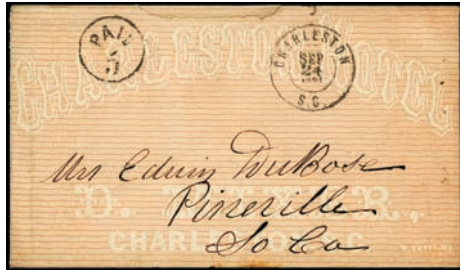 PAID
5
CHARLESTON
SEP
24
1861
S.C.
CHARLESTON HOTEL
Mrs Edwin DuBose
Pineville
So Ca
D. MIXER,
CHARLESTON, S.C.